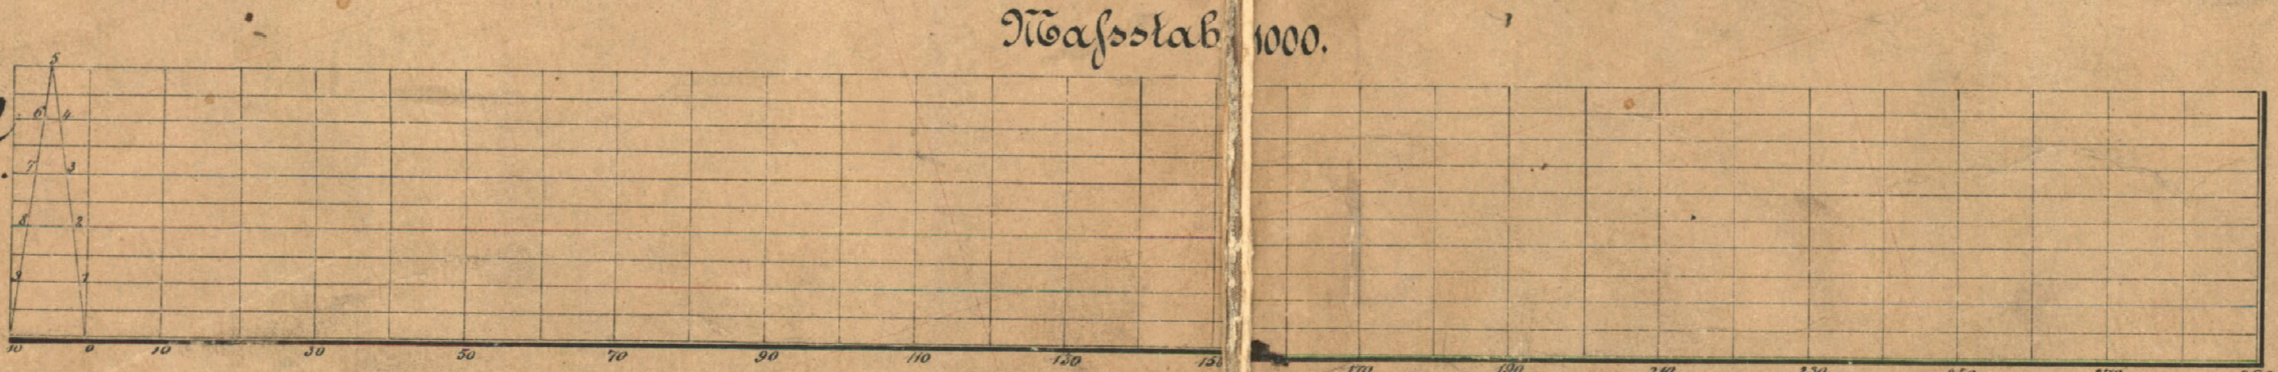 Maſsstab 1000.
5
6 4
7 3
8 2
9 1
10 0 10 30 50 70 90 110 130 150 170 190 210 230 250 270